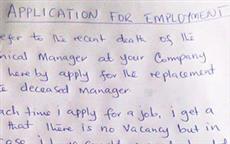 APPLICATION FOR EMPLOYMENT
efer to the recent death of the
nical Manager at your Company
here by apply for the replacement
e deceased manager
ach time I apply for a job, i get a
that there is no Vacancy but in